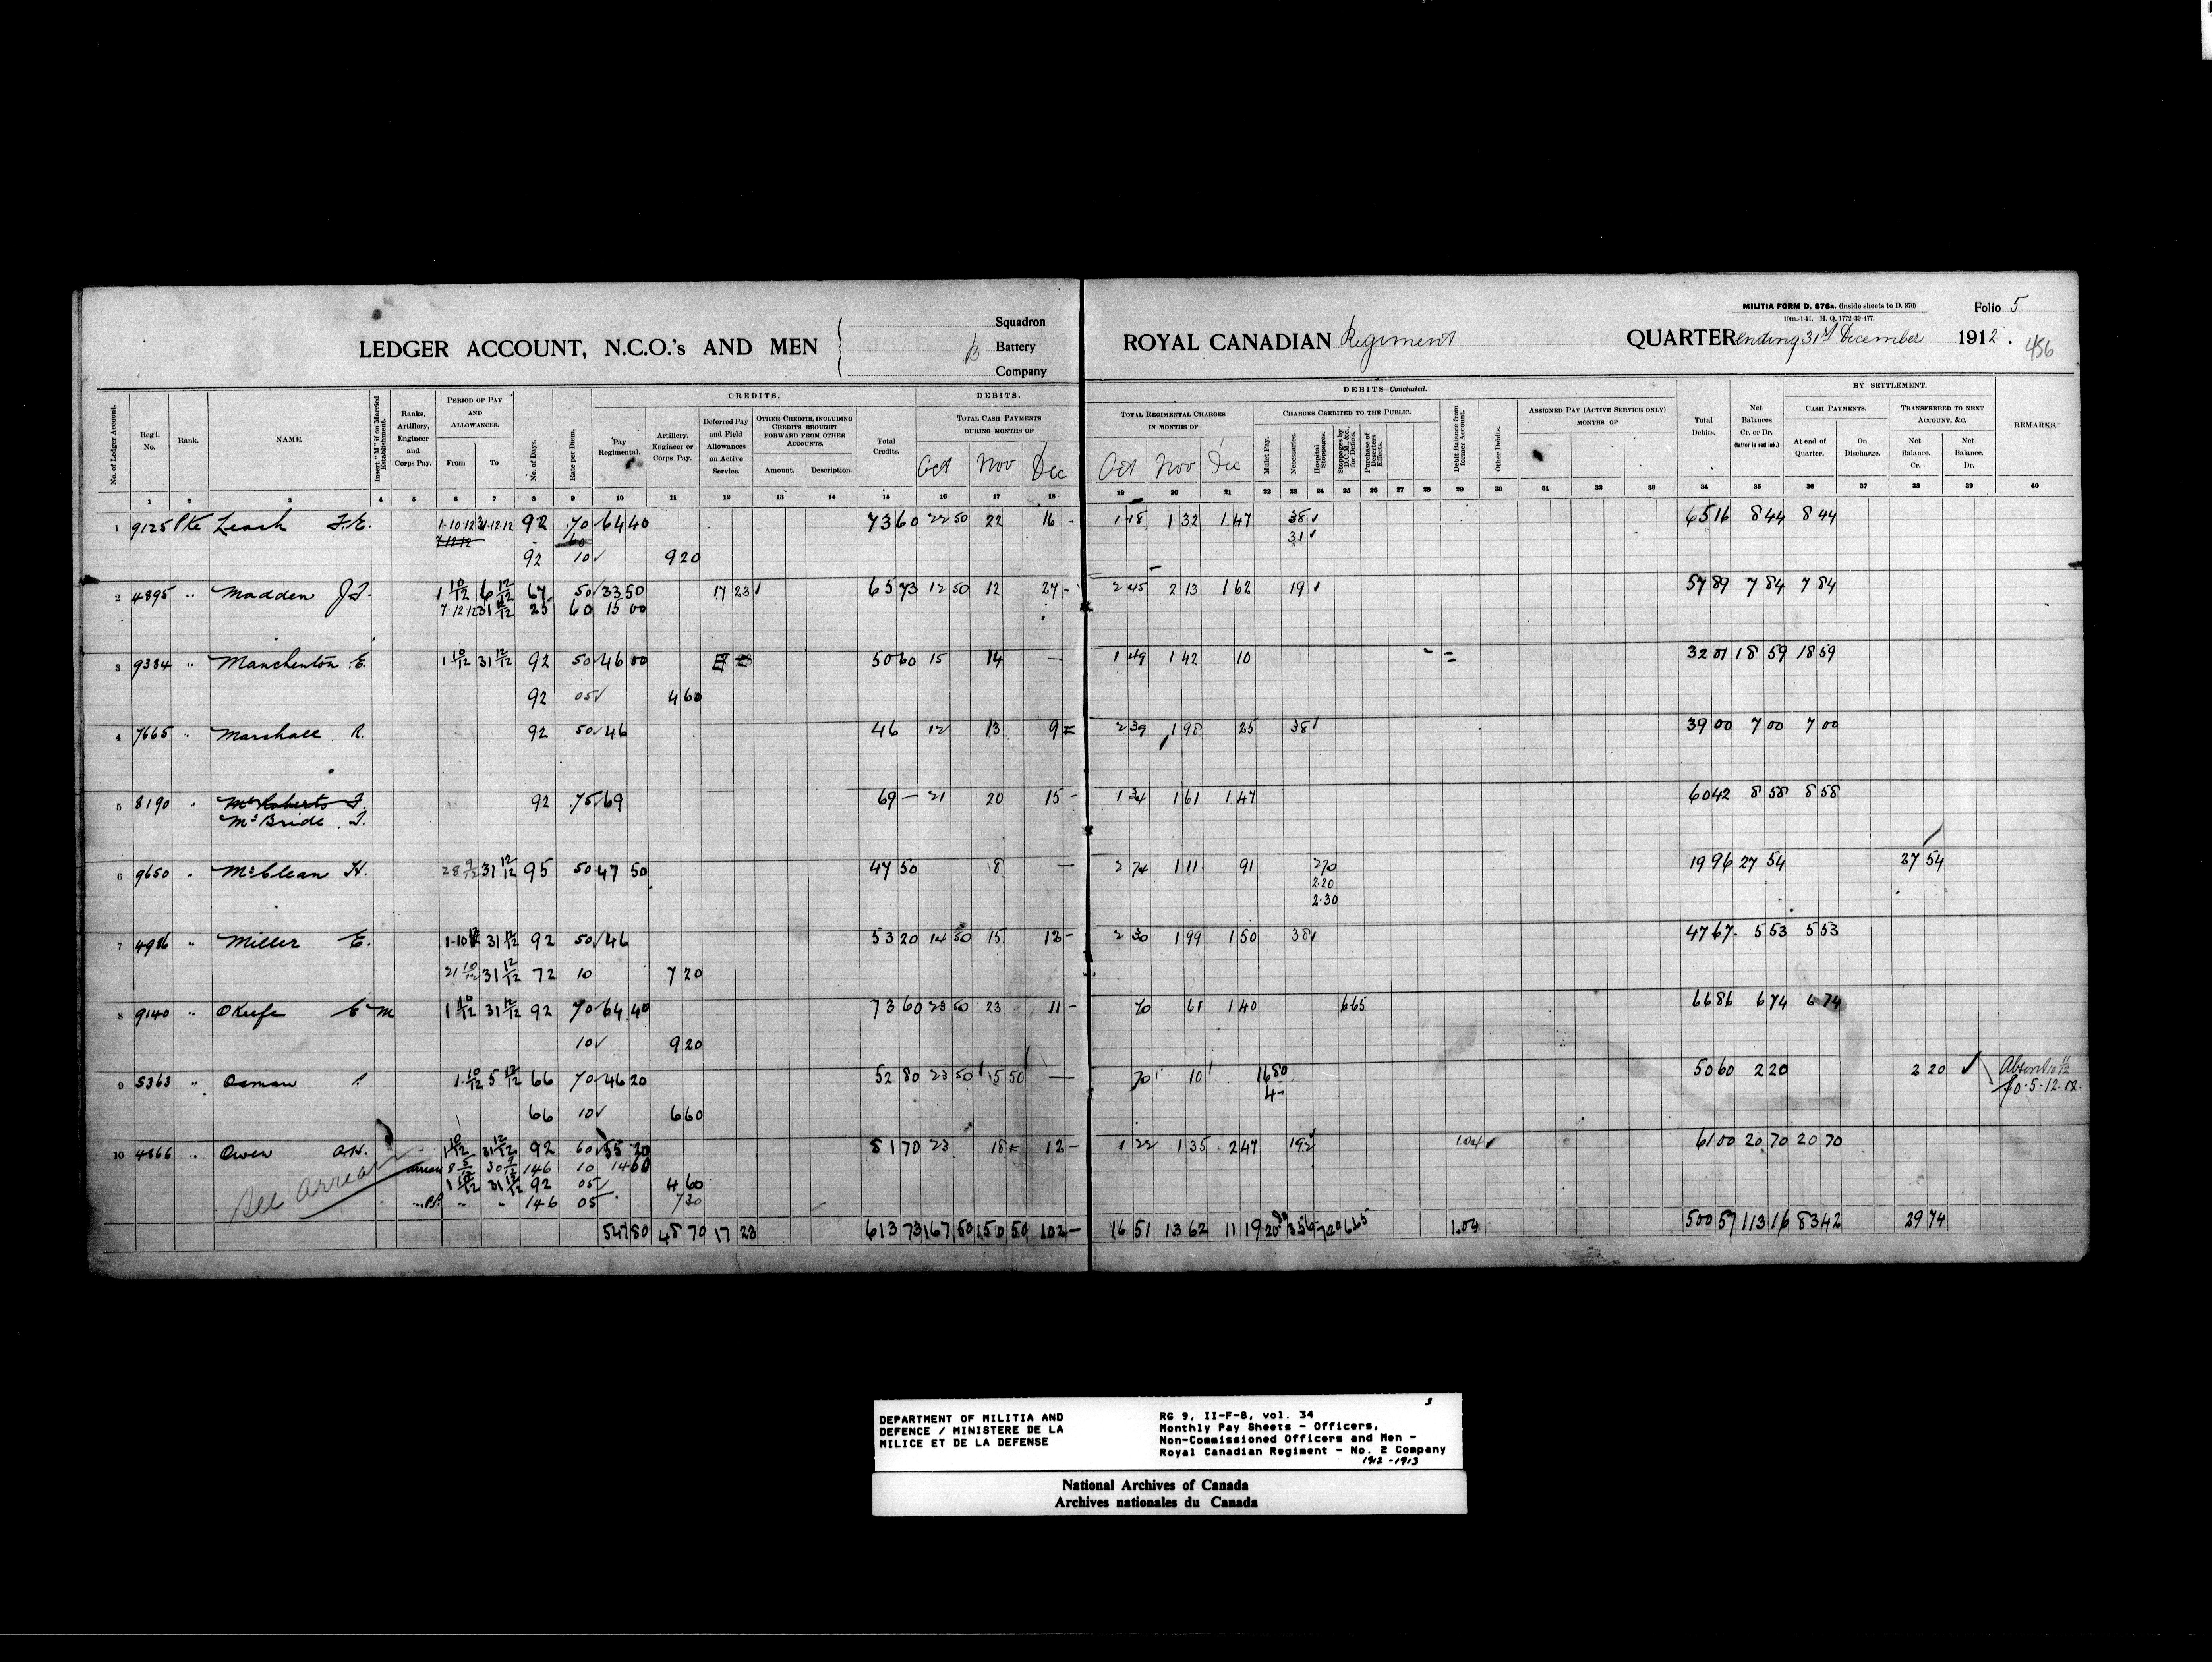 MILITIA FORM D. 876a. (inside sheets to D. 876)
10m.-1-11. H. Q. 1772-39-477.
Folio 5
LEDGER ACCOUNT, N.C.O.'s AND MEN
Squadron
B Battery
Company
ROYAL CANADIAN Regiment
QUARTER ending 31st December 1912.
456
CREDITS.
DEBITS.
DEBITS—Concluded.
BY SETTLEMENT.
No. of Ledger Account.
Reg'l. No.
Rank.
NAME.
Insert "M" if on Married Establishment.
Ranks, Artillery, Engineer and Corps Pay.
PERIOD OF PAY AND ALLOWANCES.
From
To
No. of Days.
Rate per Diem.
Pay Regimental.
Artillery, Engineer or Corps Pay.
Deferred Pay and Field Allowances on Active Service.
OTHER CREDITS, INCLUDING CREDITS BROUGHT FORWARD FROM OTHER ACCOUNTS.
Amount.
Description.
Total Credits.
TOTAL CASH PAYMENTS DURING MONTHS OF
Oct Nov Dec
TOTAL REGIMENTAL CHARGES IN MONTHS OF
Oct Nov Dec
CHARGES CREDITED TO THE PUBLIC.
Mulct Pay.
Necessaries.
Hospital Stoppages.
Stoppages by D.C., M., &c., for Deficis.
Purchase of Deserters Effects.
Debit Balance from former Account.
Other Debits.
ASSIGNED PAY (ACTIVE SERVICE ONLY) MONTHS OF
Total Debits.
Net Balances Cr. or Dr. (latter in red ink.)
CASH PAYMENTS.
At end of Quarter.
On Discharge.
TRANSFERRED TO NEXT ACCOUNT, &C.
Net Balance. Cr.
Net Balance. Dr.
REMARKS.
1 2 3 4 5 6 7 8 9 10 11 12 13 14 15 16 17 18 19 20 21 22 23 24 25 26 27 28 29 30 31 32 33 34 35 36 37 38 39 40
1 9125 Pte Leach F.E. 1-10-12 31-12-12 92 .70 64 40 73 60 22 50 22 16 - 1 18 1 32 1 47 38 65 16 8 44 8 44
7-12-12 60 31
92 10 9 20
2 4895 " Madden J.F. 1 10/12 6 12/12 67 50 33 50 17 23 65 73 12 50 12 27 - 2 45 2 13 1 62 19 57 89 7 84 7 84
7-12-12 31 12/12 25 60 15 00
3 9384 " Manchenton E. 1 10/12 31 12/12 92 50 46 00 17 23 50 60 15 14 — 1 49 1 42 10 32 01 18 59 18 59
92 05 4 60
4 7665 " Marshall R. 92 50 46 46 12 13 9 = 2 39 1 98 25 38 39 00 7 00 7 00
5 8190 " McRoberts F. 92 .75 69 69 — 21 20 15 - 1 34 1 61 1 47 60 42 8 58 8 58
McBride F.
6 9650 " McClean H. 28 9/12 31 12/12 95 50 47 50 47 50 8 — 2 74 1 11 91 270 19 96 27 54 27 54
2.20
2.30
7 4986 " Miller E. 1-10-12 31 12/12 92 50 46 53 20 14 50 15 12 - 2 30 1 99 1 50 38 47 67 5 53 5 53
21 10/12 31 12/12 72 10 7 20
8 9140 " OKeefe E M 1 10/12 31 12/12 92 70 64 40 73 60 23 50 23 11 - 70 61 1 40 6 65 66 86 6 74 6 74
10 9 20
9 5363 " Osman 1 10/12 5 12/12 66 70 46 20 52 80 23 50 5 50 — 70 10 16 80 50 60 2 20 2 20 Absent
4 - to 5-12-12.
66 10 6 60
10 4866 " Owen A.H. 1 10/12 31 12/12 92 60 55 20 81 70 23 18 = 12 - 1 22 1 35 2 47 192 1.04 61 00 20 70 20 70
arrears 8 5/12 30 9/12 146 10 14 60
1 10/12 31 12/12 92 05 4 60
See arrears
" " 146 05 7 30
547 80 48 70 17 23 613 73 167 50 150 50 102 - 16 51 13 62 11 19 20 80 3 56 7 20 6 65 1.04 500 57 113 16 83 42 29 74
3
DEPARTMENT OF MILITIA AND
DEFENCE / MINISTERE DE LA
MILICE ET DE LA DEFENSE
RG 9, II-F-8, vol. 34
Monthly Pay Sheets - Officers,
Non-Commissioned Officers and Men -
Royal Canadian Regiment - No. 2 Company
1912-1913
National Archives of Canada
Archives nationales du Canada